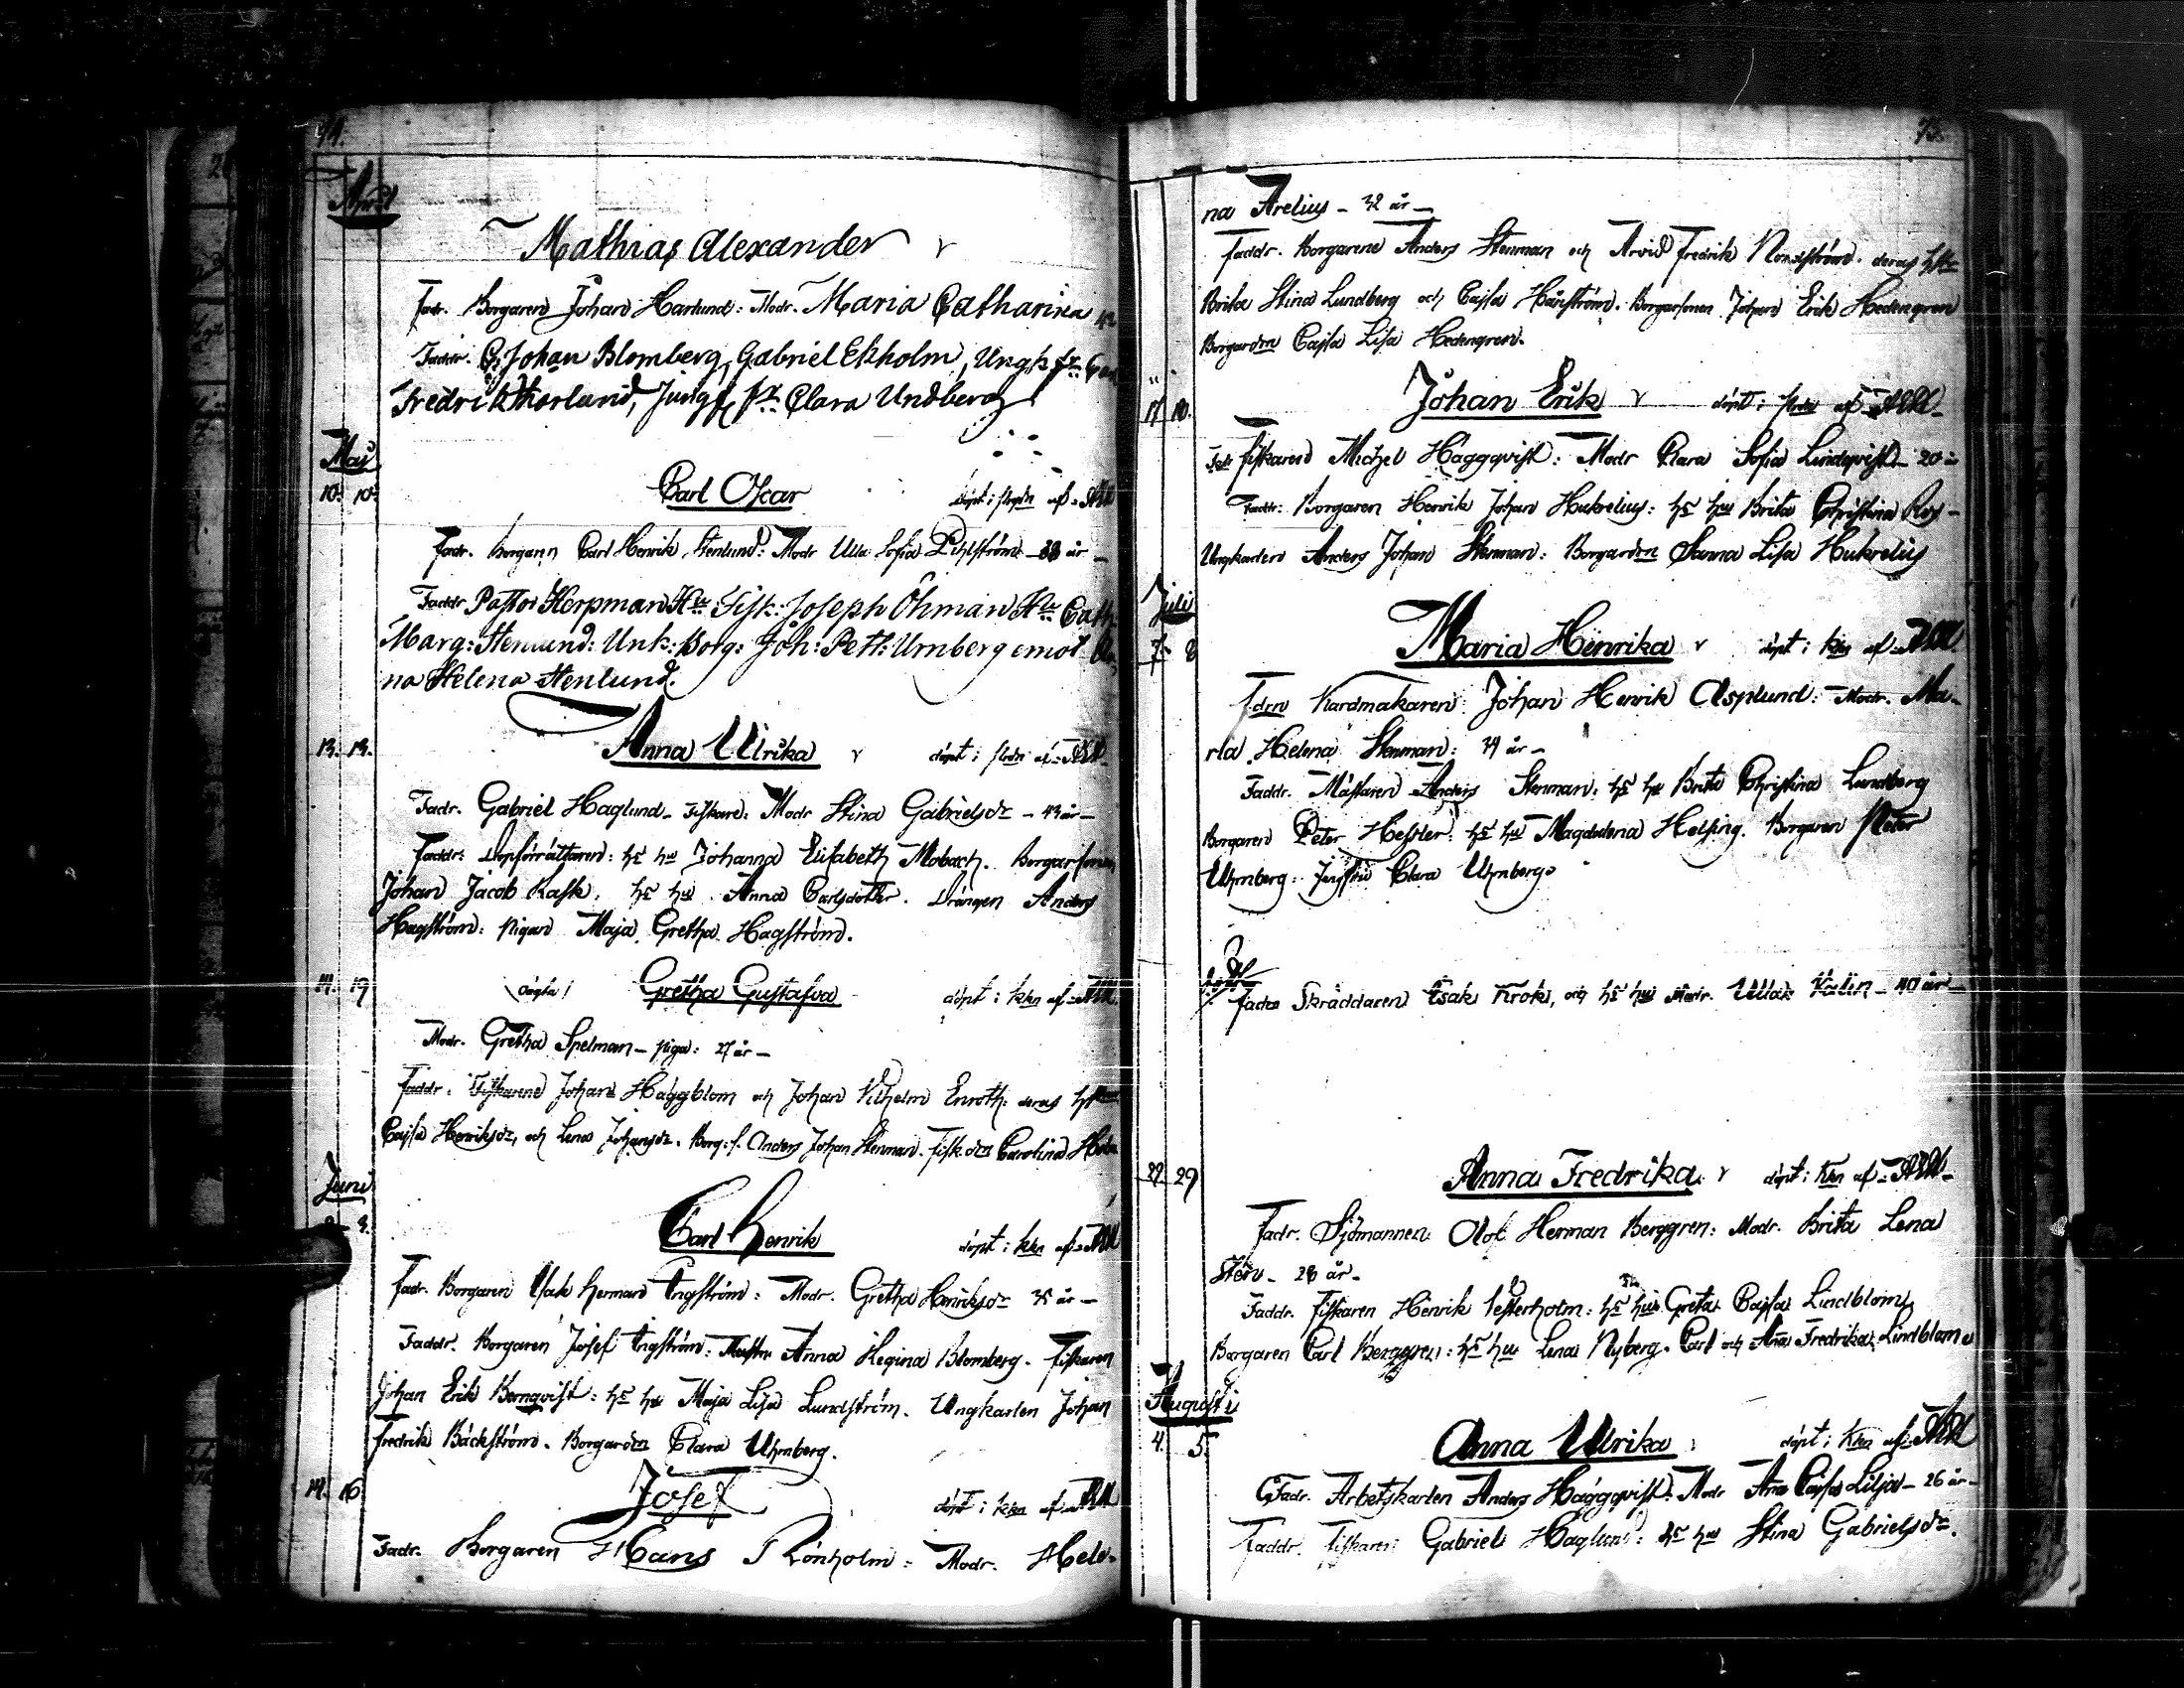 94.
April
Mathias Alexander
Fadr. Borgaren Johan Harlund: Modr. Maria Catharina
Faddr. Johan Blomberg, Gabriel Ekholm, Ungk
Fredrik Harlund, Jungf Clara Undberg
Maj
10. 10. Carl Oscar döpt i
Fadr. Borgaren Carl Henrik Stenlund: Modr Ulla Sofia Pihlström 38 år
Faddr Pastor Herpman Fisk: Joseph Öhman Cath.
Marg: Stenlund: Unk: Borg: Joh: Pett: Urnberg emot
na Helena Stenlund.
13. 13. Anna Ulrika döpt i
Fadr. Gabriel Haglund Fiskare: Modr Stina Gabrielsdr - 43 år -
Faddr: Dopförrättaren: hs hu Johanna Elisabeth Mobach. Borgarsonen
Johan Jacob Rask. hs hu Anna Carlsdotter. Drängen Anders
Hagström: Pigan Maja Gretha Hagström.
14. 19 oägta! Gretha Gustafva döpt i kkn af
Modr. Gretha Spelman - piga: 27 år -
Faddr. Fiskarene Johan Häggblom och Johan Vilhelm Enroth: deras
Cajsa Henriksdr, och Lena Johansdr. Borg: s. Anders Johan Stenman. Fisk. Carolina
Juni
Carl Henrik döpt i kkn af
Fadr. Borgaren Isak Herman Engström: Modr. Gretha Henriksdr 35 år -
Faddr. Borgaren Josef Engström: Anna Regina Blomberg. Fiskaren
Johan Erik Bernqvist: hs hu Maja Lisa Lundström. Ungkarlen Johan
Fredrik Bäckström. Borgardrn Clara Uhrnberg.
14. 16 Josef döpt i kkn af
Fadr. Borgaren Hans Rönholm: Modr. Hele-
75.
na Arelius - 32 år -
Faddr. Borgarene Anders Stenman och Arvid Fredrik Nordström. deras
Brita Stina Lundberg och Cajsa Hårström. Borgarsonen Johan Erik Hedengren
Borgardrn Cajsa Lisa Hedengren.
17 18. Johan Erik döpt i
Fiskaren Michel Häggqvist: Modr Clara Sofia Lindqvist 20
Faddr: Borgaren Henrik Johan Hukrelius: hs hu Brita Christina
Ungkarlen Anders Johan Stenman: Borgardrn Sanna Lisa Hukrelius
Juli
7. 8 Maria Henrika döpt i kkn af
Kardmakaren Johan Henrik Asplund: Modr. Ma-
ria Helena Stenman: 39 år -
Faddr. Mästaren Anders Stenman: hs hu Brita Christina Lundberg
Borgaren Peter Hessler: hs hu Magdalena Helsing. Borgaren Peter
Uhrnberg: Clara Uhrnberg.
Skräddaren Isak Krok, och hs hu Modr. Ulla 40 år
22. 29 Anna Fredrika döpt i kkn af
Fadr. Sjömannen Olof Herman Berggren: Modr. Brita Lena
28 år.
Faddr. Fiskaren Henrik Vesterholm: hs hus Greta Cajsa Lindblom
Borgaren Carl Berggren: hs hu Lena Nyberg. Carl och Fredrika Lindblom
Augusti
4. 5. Anna Ulrika döpt i kkn af
Fadr. Arbetskarlen Anders Häggqvist: Modr Cajsa Lilja - 26 år -
Faddr. Fiskaren Gabriel Haglund: hs hu Stina Gabrielsdr.